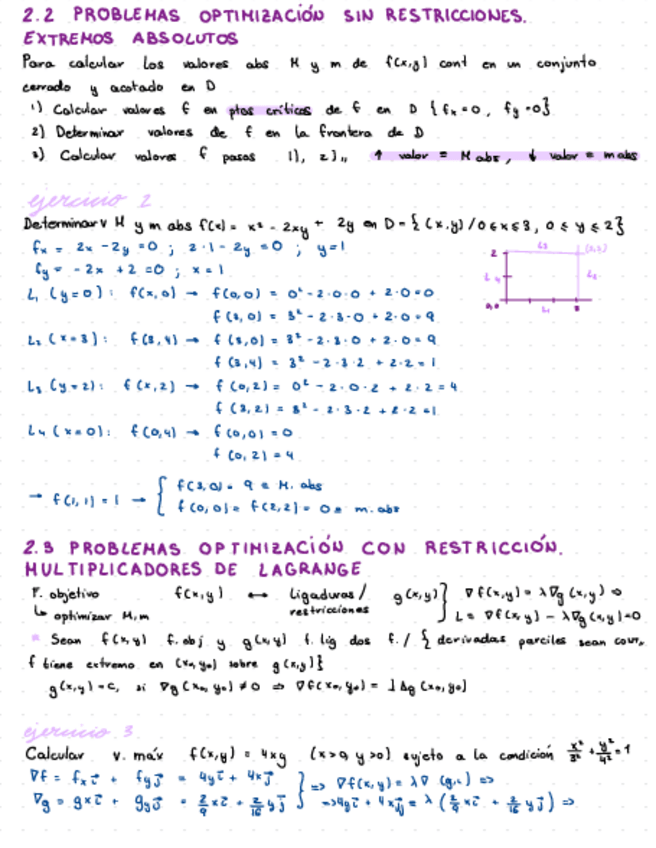 2.2 PROBLEMAS OPTIMIZACIÓN SIN RESTRICCIONES.
EXTREMOS ABSOLUTOS
Para calcular los valores abs M y m de f(x,y) cont en un conjunto
cerrado y acotado en D
1) Calcular valores f en ptos críticos de f en D {fx=0, fy=0}
2) Determinar valores de f en la frontera de D
3) Calcular valores f pasos 1), 2),, ↑ valor = M abs, ↓ valor = m abs
ejercicio 2
Determinar v M y m abs f(x) = x² - 2xy + 2y en D={(x,y)/0≤x≤3, 0≤y≤2}
fx = 2x - 2y = 0 ; 2·1 - 2y = 0 ; y=1
fy = -2x + 2 = 0 ; x = 1
2 L3 (2,2)
L4 L2
0,0 L1 3
L1 (y=0): f(x,0) → f(0,0) = 0² - 2·0·0 + 2·0=0
f(3,0) = 3² - 2·3·0 + 2·0 = 9
L2 (x=3): f(3,y) → f(3,0) = 3² - 2·3·0 + 2·0 = 9
f(3,4) = 3² - 2·3·2 + 2·2 = 1
L3 (y=2): f(x,2) → f(0,2) = 0² - 2·0·2 + 2·2 = 4
f(3,2) = 3² - 2·3·2 + 2·2 =1
L4 (x=0): f(0,y) → f(0,0) = 0
f(0,2) = 4
→ f(1,1) = 1 → { f(3,0) = 9 = M. abs
f(0,0) = f(2,2) = 0 = m. abs
2.3 PROBLEMAS OPTIMIZACIÓN CON RESTRICCIÓN.
MULTIPLICADORES DE LAGRANGE
F. objetivo f(x,y) ↔ ligaduras/ g(x,y)} ∇f(x,y) = λ∇g(x,y) ⇒
↳ optimizar M,m restricciones L = ∇f(x,y) - λ∇g(x,y)=0
Sean f(x,y) f. obj y g(x,y) f. lig dos f. / { derivadas parciles sean cont,
f tiene extremo en (x0,y0) sobre g(x,y)}
g(x,y)=c, si ∇g(x0,y0) ≠ 0 ⇒ ∇f(x0,y0) = λ∆g(x0,y0)
ejercicio 3
Calcular v. máx f(x,y) = 4xy (x>0, y>0) sujeto a la condición x²/3² + y²/4² = 1
∇f = fx i + fy j = 4y i + 4x j } => ∇f(x,y) = λ∇ (g,c) =>
∇g = gx i + gy j = 2/9 x i + 2/16 y j => 4y i + 4x j = λ (2/9 x i + 2/16 y j) =>